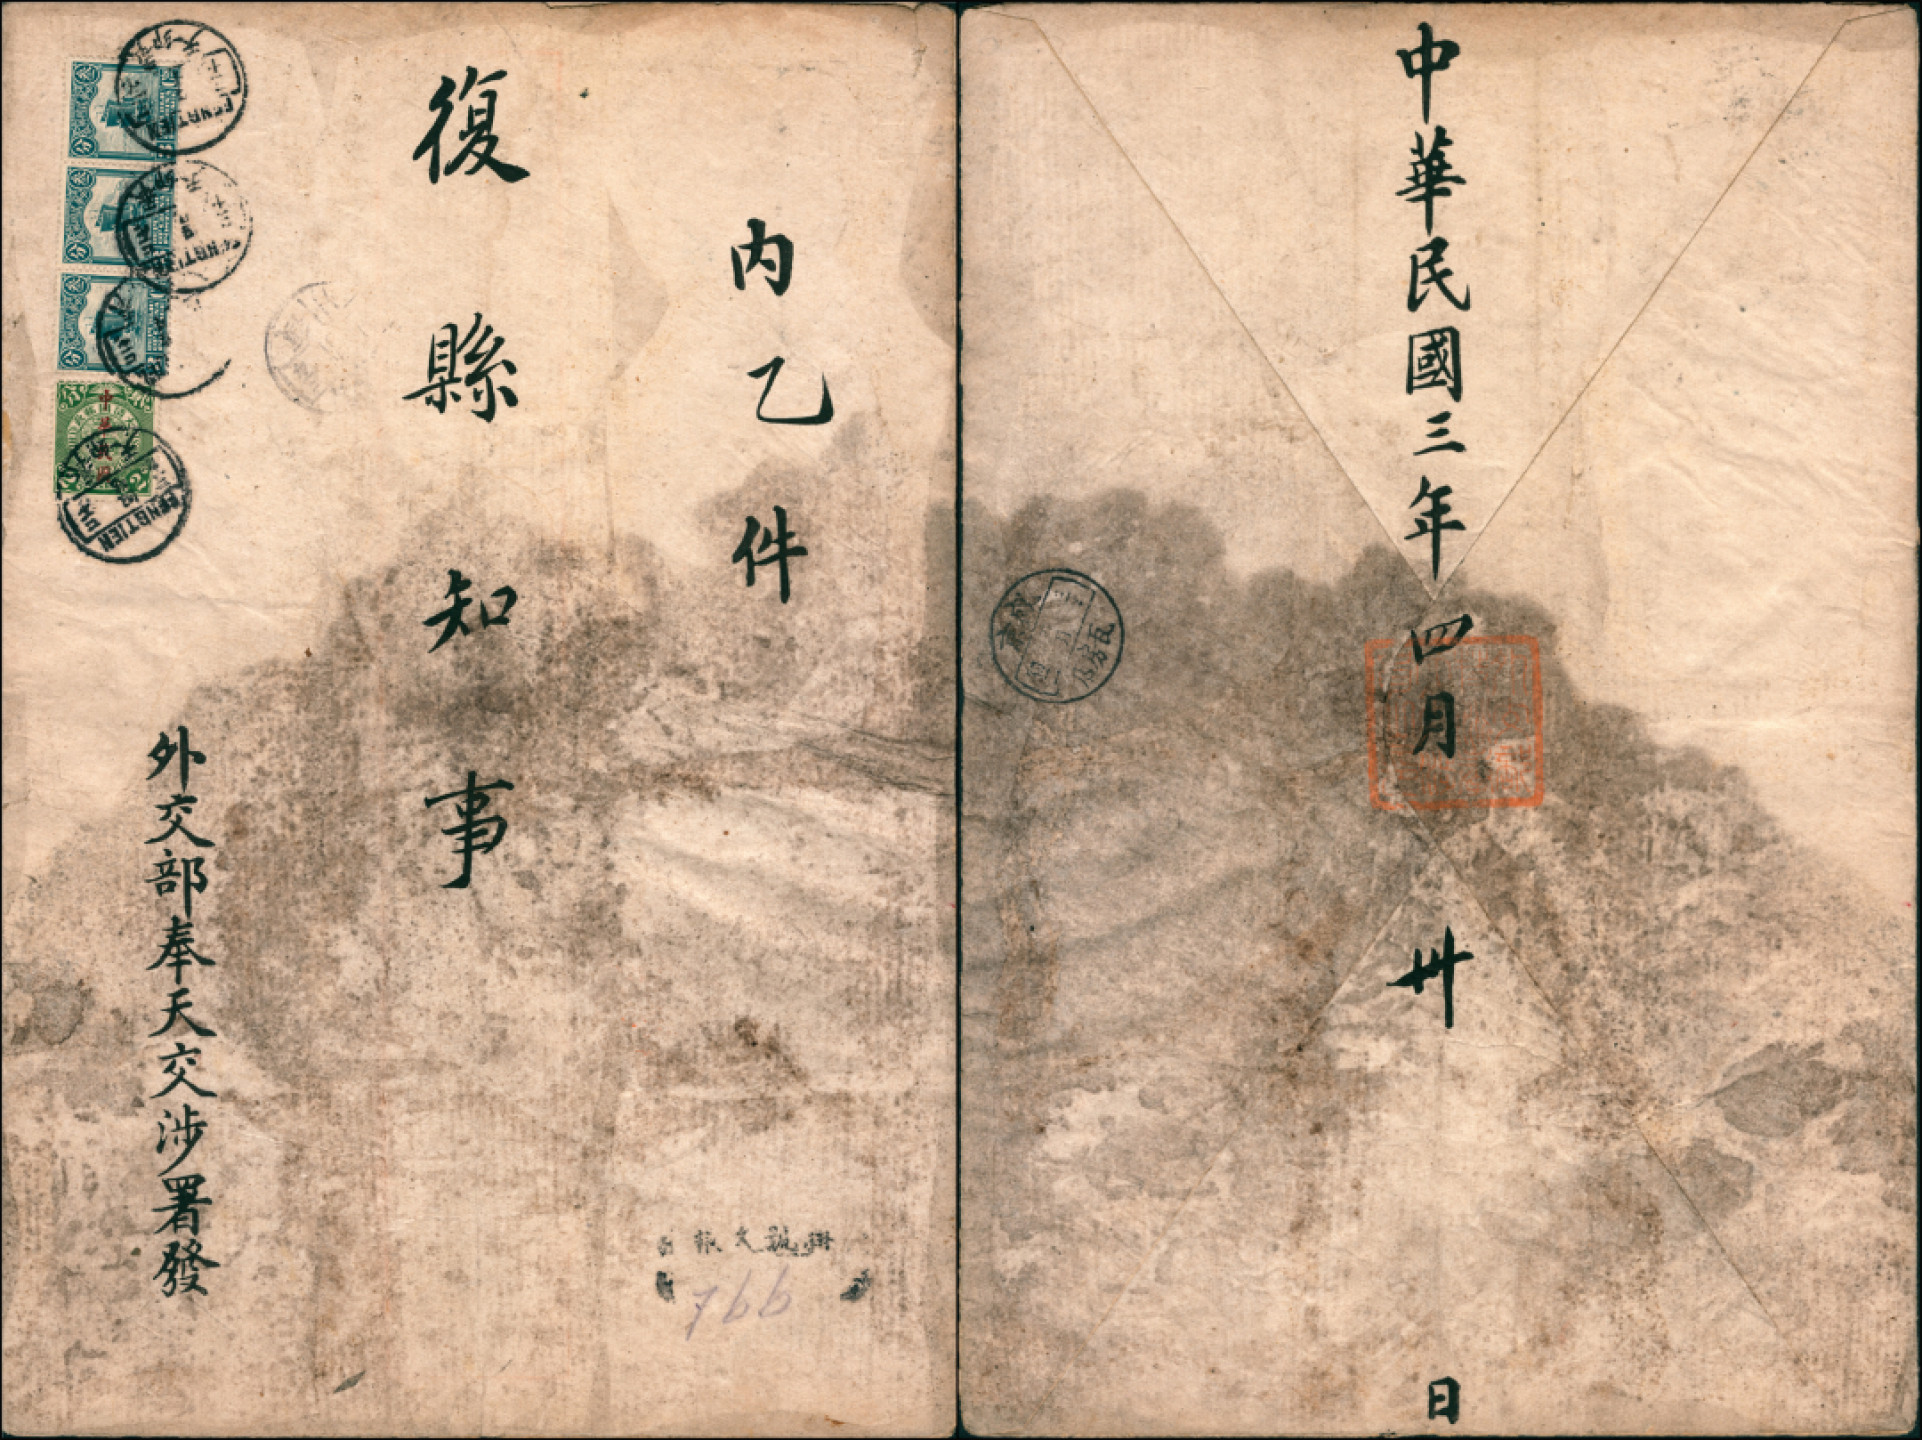 內乙件
復縣知事
外交部奉天交涉署發
FENGTIEN
FENGTIEN
FENGTIEN
掛號文報
766
中華民國三年四月卅日